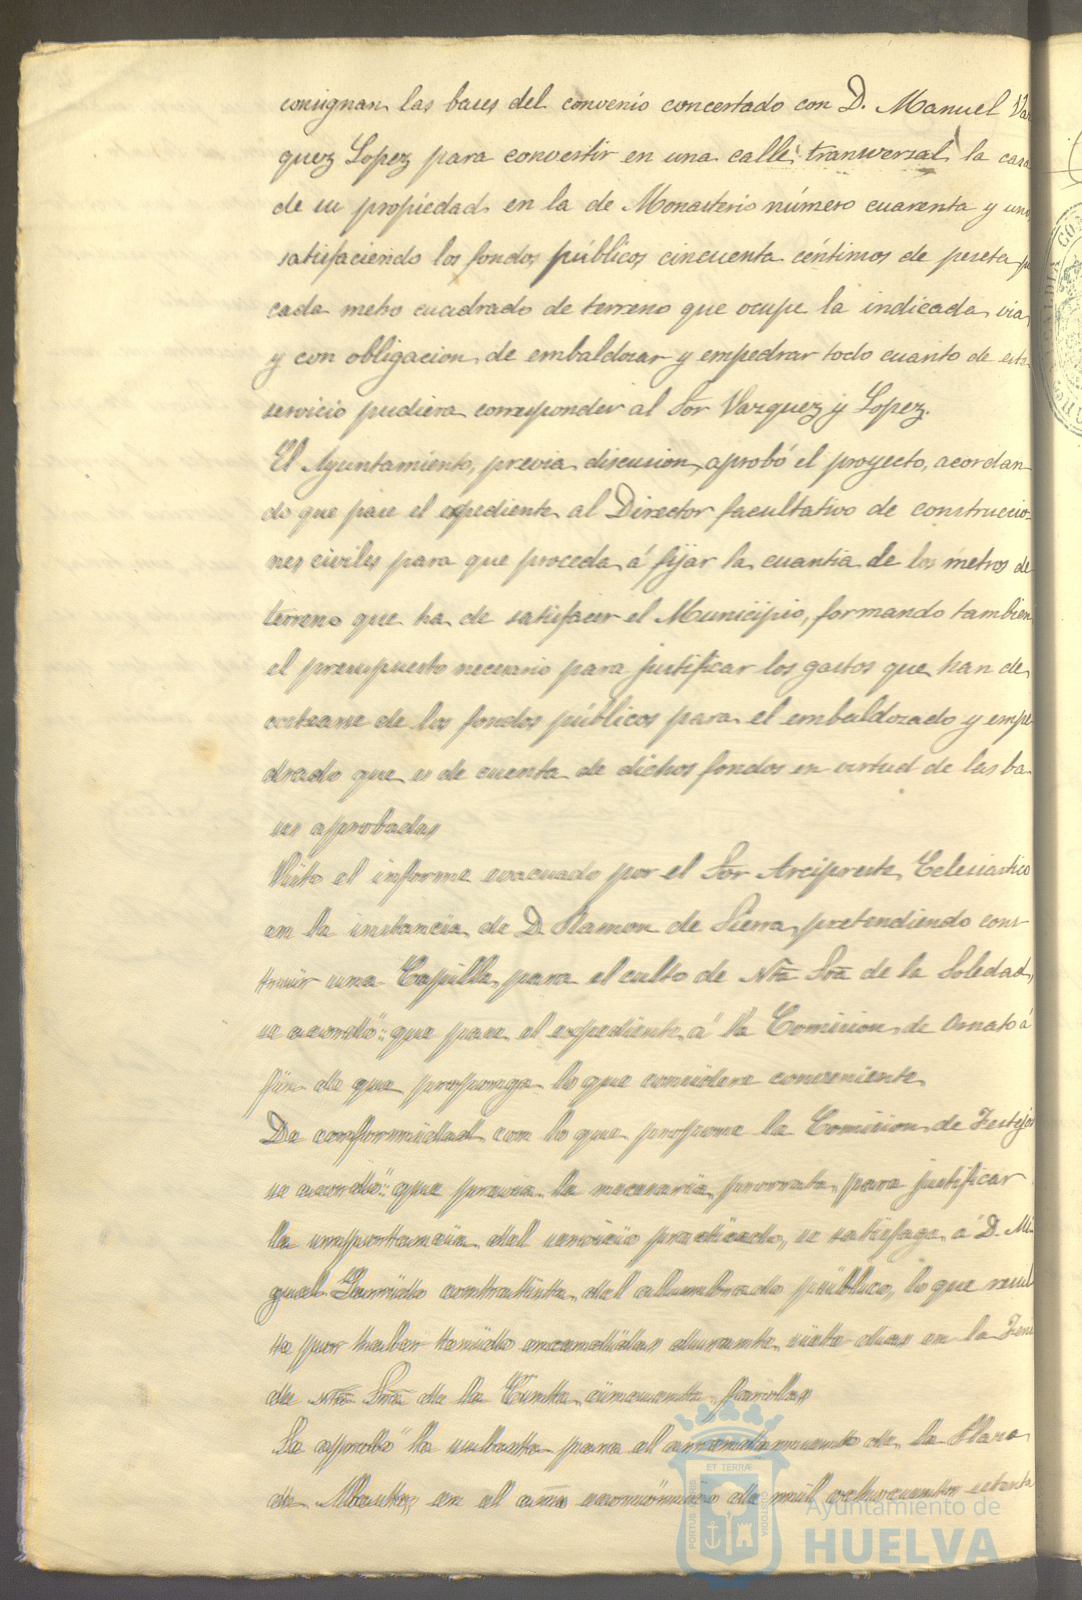 consignan las bases del convenio concertado con D. Manuel Vaz
quez Lopez para convertir en una calle tranversal la casa
de su propiedad en la de Monasterio número cuarenta y uno
satisfaciendo los fondos públicos cincuenta céntimos de peseta
cada metro cuadrado de terreno que ocupe la indicada via,
y con obligacion de embaldozar y empedrar todo cuanto de este
servicio pudiera corresponder al Sor Vazquez y Lopez.
El Ayuntamiento, previa discusion, aprobó el proyecto, acordan
do que pase el expediente al Director facultativo de construccio-
nes civiles para que proceda á fijar la cuantia de los metros de
terreno que ha de satisfacer el Municipio, formando tambien
el presupuesto necesario para justificar los gastos que han de
costearse de los fondos públicos para el embaldozado y empe
drado que es de cuenta de dichos fondos en virtud de las ba
ses aprobadas
Visto el informe evacuado por el Sor Arcipreste Eclesiastico
en la instancia de D. Ramon de Sierra, pretendiendo cons
truir una Capilla para el culto de Ntra Sra de la Soledad,
se acordó: que pase el expediente á la Comision de Ornato á
fin de que proponga lo que considere conveniente
De conformidad con lo que propone la Comision de Festejos
se acordó: que previa la necesaria prorrata para justificar
la importancia del servicio practicado, se satisfaga á D. Mi
guel Garrido contratista del alumbrado público, lo que resul
ta por haber tenido encendidas durante siete dias en la Feria
de Ntra Sra de la Cinta, cincuenta farolas
Se aprobó la subasta para el arrendamiento de la Plaza
de Abastos, en el año económico de mil ochocientos setenta
PORTUS MARIS
ET TERRÆ
CUSTODIA
Ayuntamiento de
HUELVA